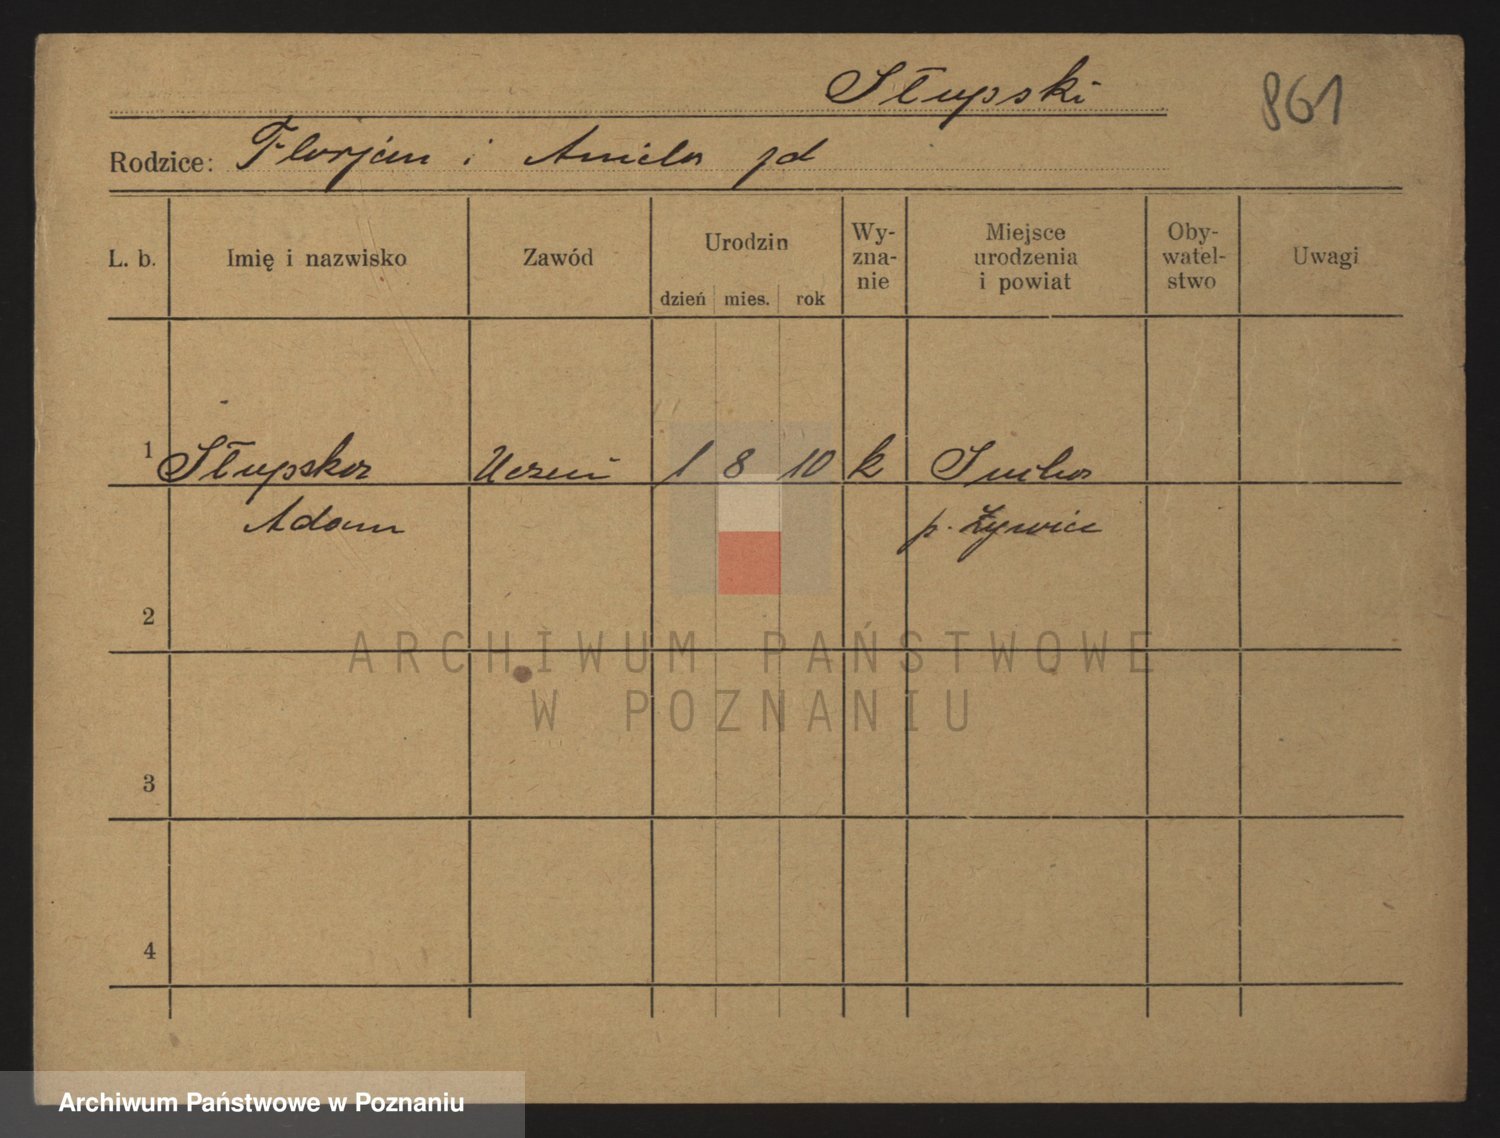 Słupski
861
Rodzice: Florjan i Aniela
L. b. Imię i nazwisko Zawód Urodzin dzień mies. rok Wy-zna-nie Miejsce urodzenia i powiat Oby-watel-stwo Uwagi
1 Słupska Uczeń 1 8 10 k
Adam p. Żywiec
2
3
4
ARCHIWUM PAŃSTWOWE
W POZNANIU
Archiwum Państwowe w Poznaniu